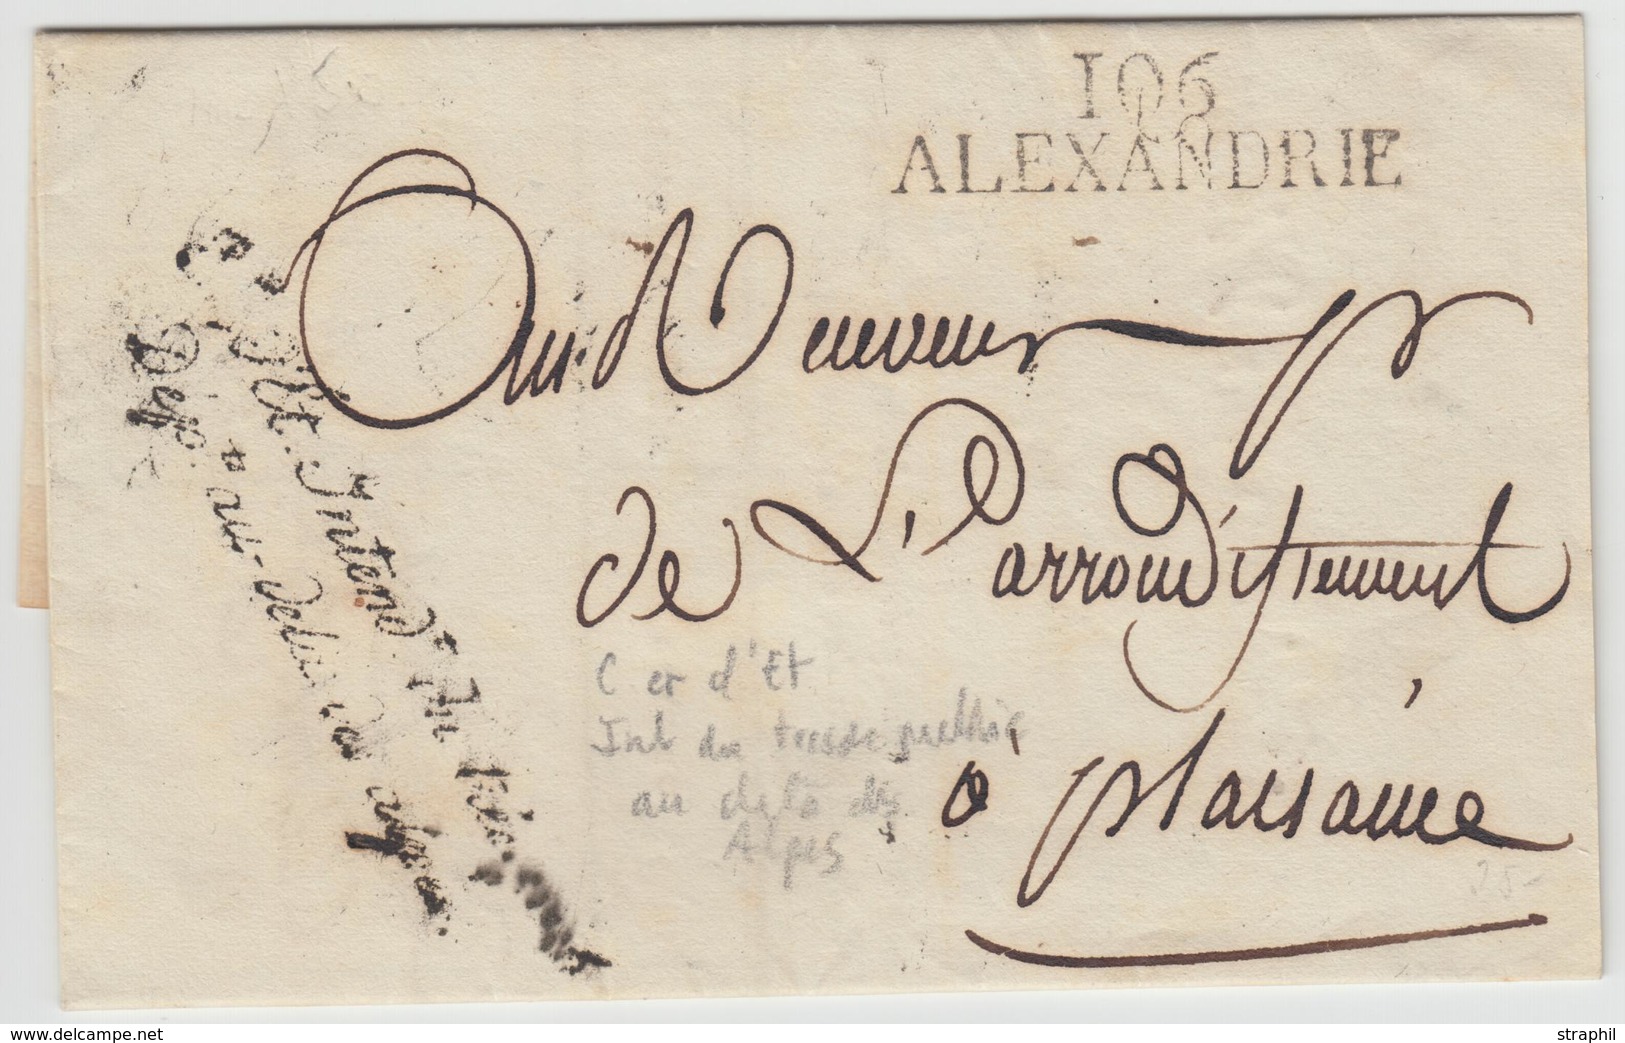 106
ALEXANDRIE
C. er d'Et. Intend. du trés. public
Dep. au-delà des alpes.
Au Receveur pr
de L'arrondissement
à plaisance
C er d'Et
Int du tresor public
au dela des
Alpes
delcampe.net
straphil